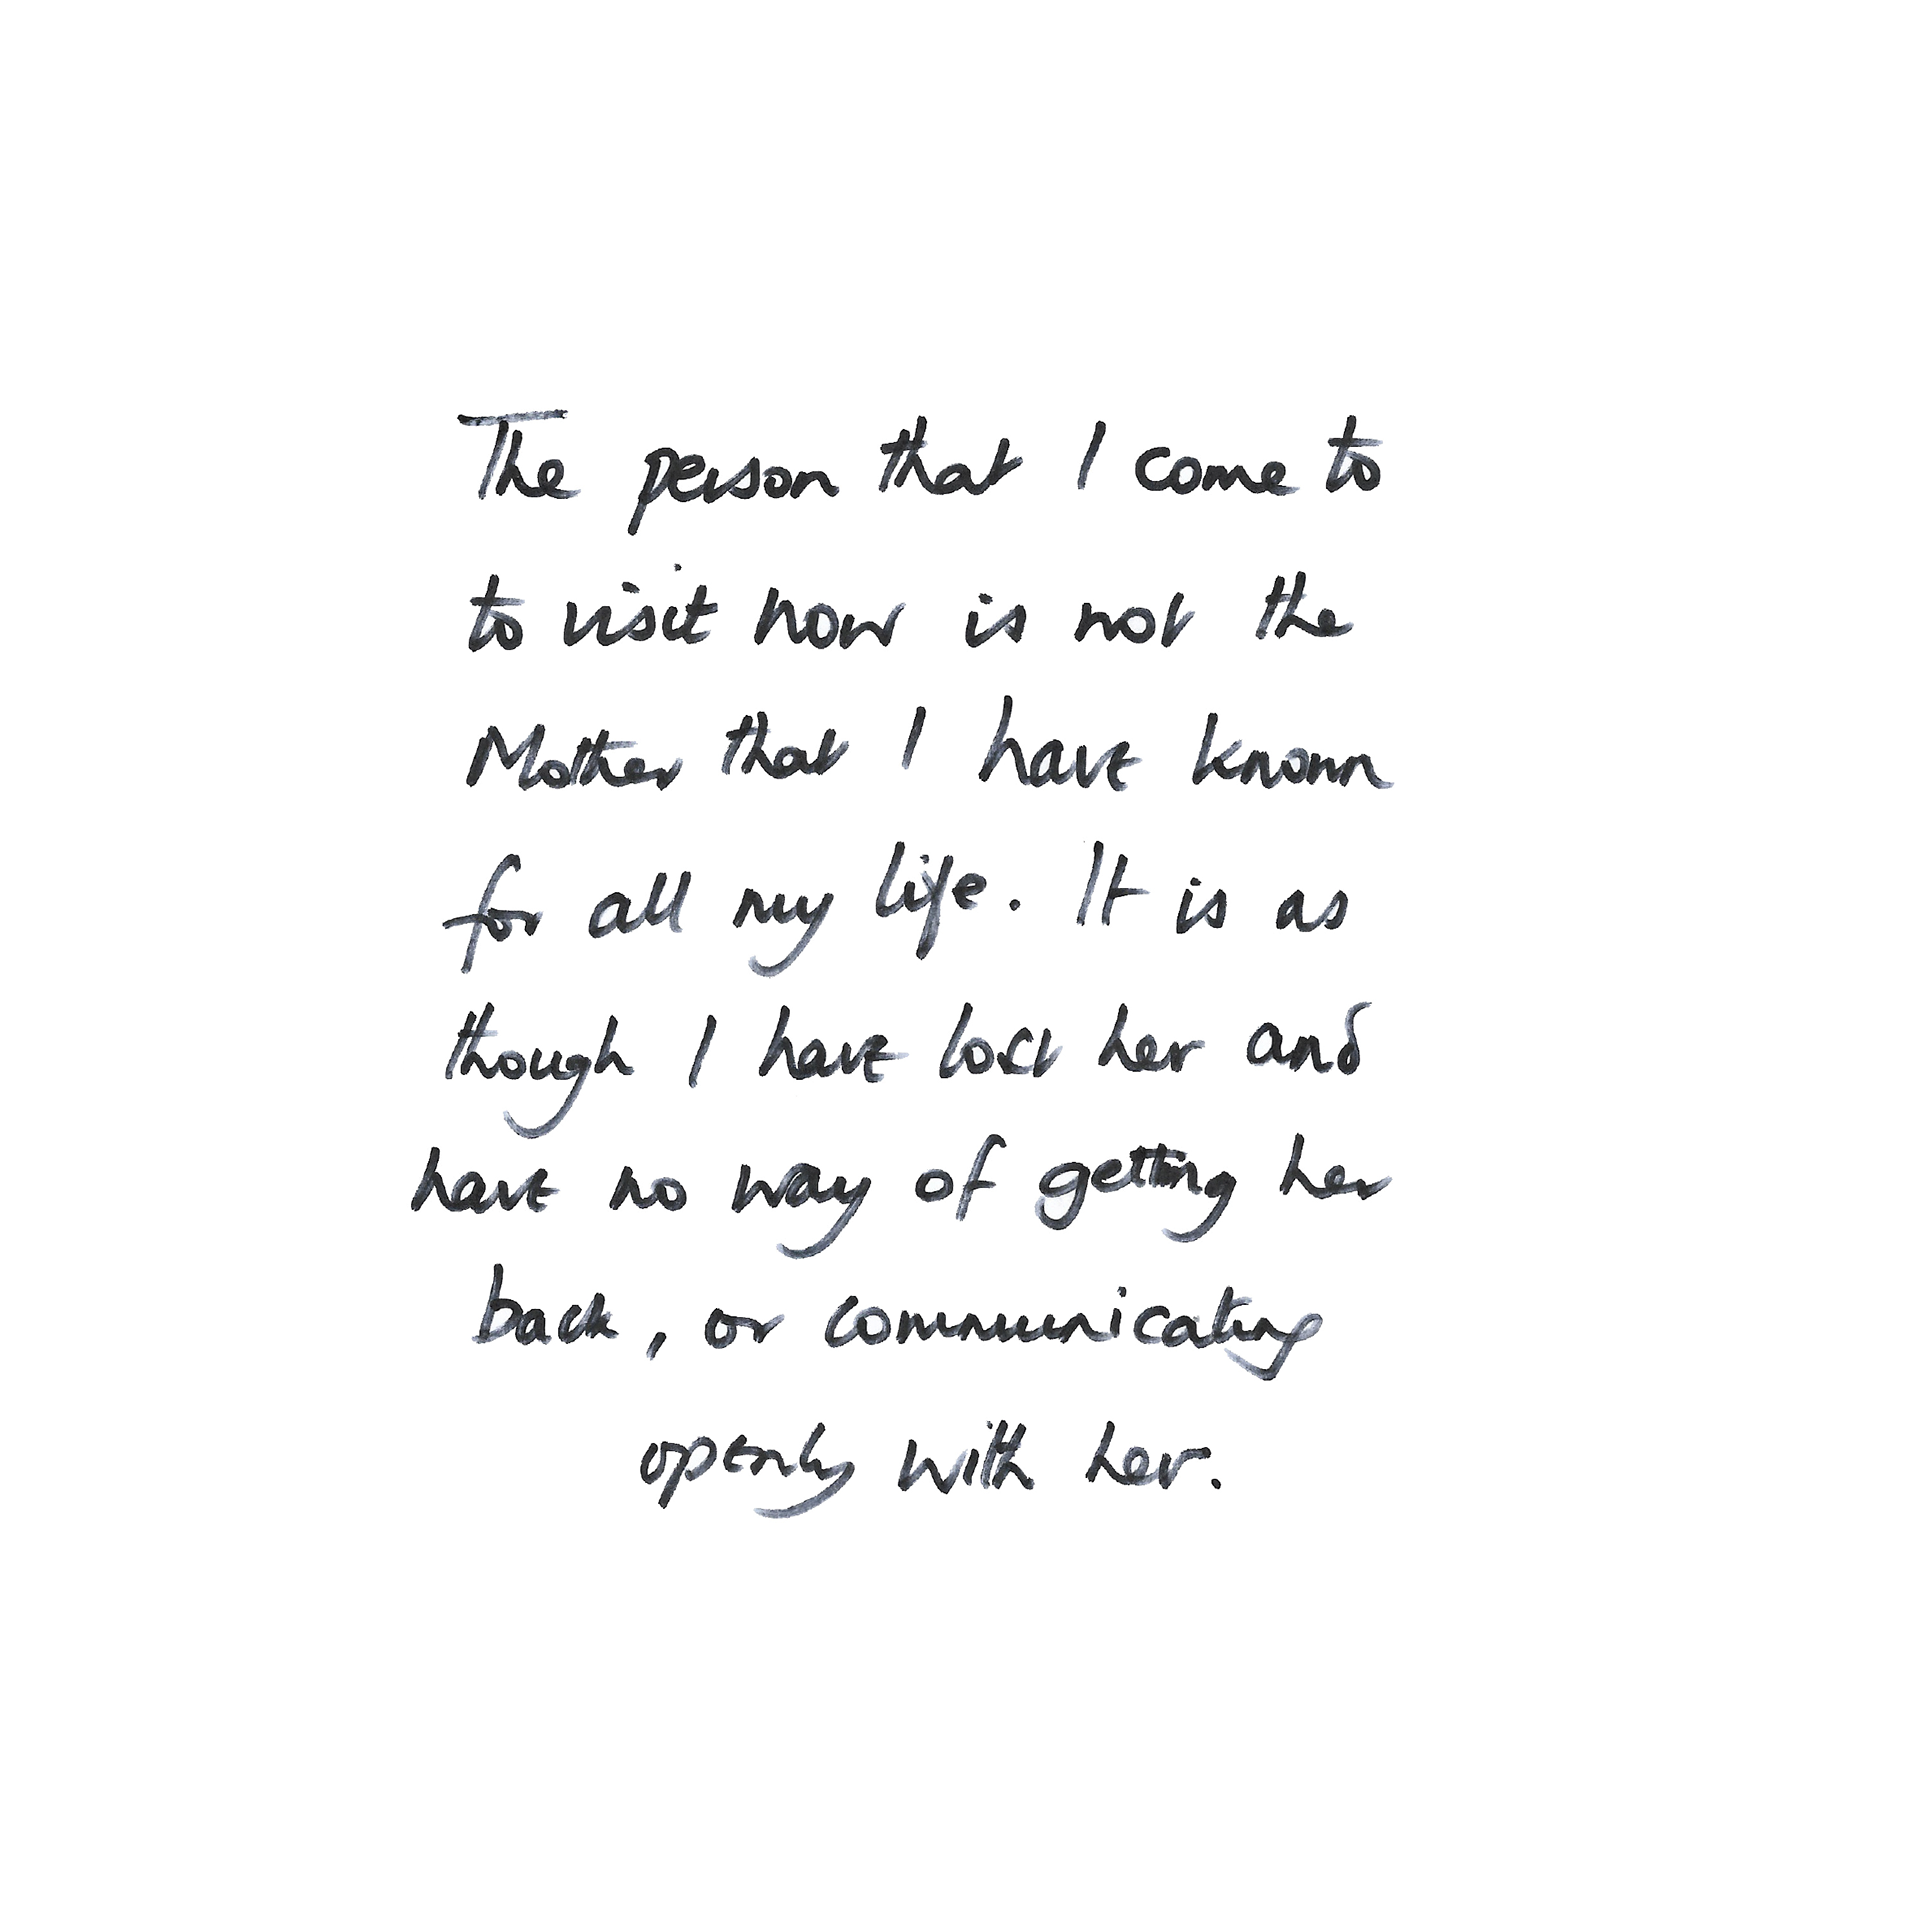 The person that I come to
to visit now is not the
Mother that I have known
for all my life. It is as
though I have lost her and
have no way of getting her
back, or communicating
openly with her.